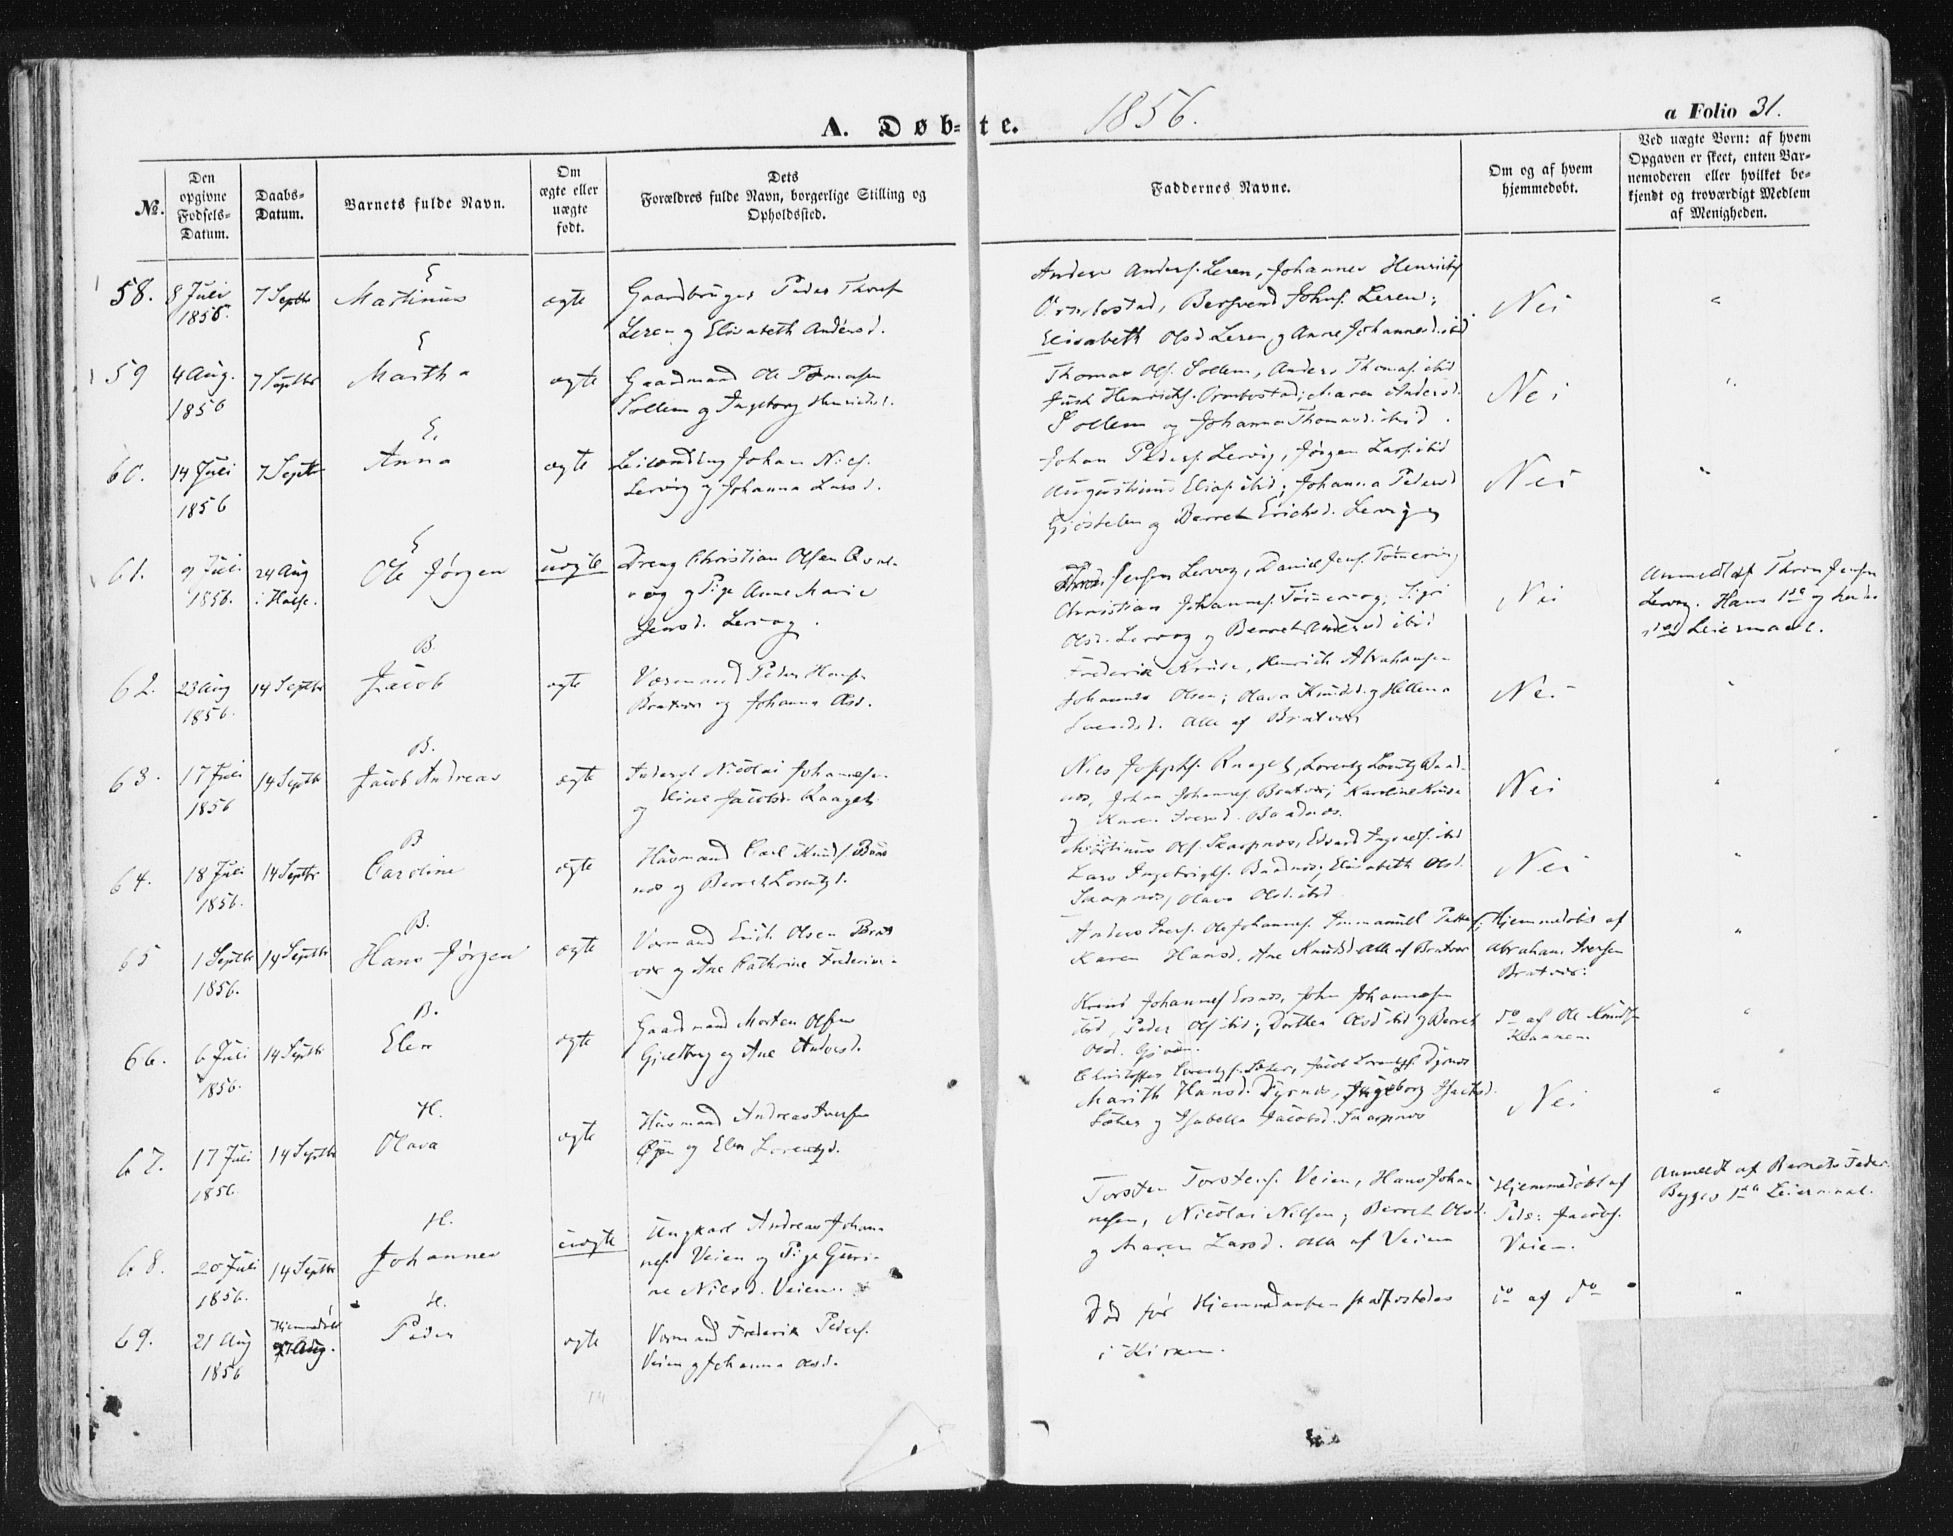 A. Døb=te.
1856.
a Folio 31.
№.
Den opgivne Fødsels-Datum.
Daabs-Datum.
Barnets fulde Navn.
Om ægte eller uægte født.
Dets Forældres fulde Navn, borgerlige Stilling og Opholdssted.
Faddernes Navne.
Om og af hvem hjemmedøbt.
Ved uægte Børn: af hvem Opgaven er skeet, enten Barnemoderen eller hvilket bekjendt og troværdigt Medlem af Menigheden.
58. 8 Juli 1856. 7 Septbr
E
Martinus
ægte
Gaardbruger Peder Thores
Leren og Elisabeth Andersd.
Anders Anders. Leren, Johannes Henriks
Ornbostad, Bersvend Johns. Leren;
Elisabeth Olsd Leren og Anne Johannesd. ibid
Nei
"
59 4 Aug. 1856 7 Septbr
E
Martha
ægte
Gaardmand Ole Thomasen
Sollem og Ingeborg Henriksd.
Thomas Ols. Sollem, Anders Thomas. ibid
Henriks. Ornbostad; Maren Andersd.
Sollem og Johanna Thomasd. ibid.
Nei
"
60. 14 Juli 1856 7 Septbr
E.
Anna
ægte
Leilænding Johan Niels.
Lervig og Johanna Larsd.
Johan Peders. Lervig, Jørgen Lars. ibid
Augustinus Elias. ibid; Johanna Pedersd
og Berret Erichsd. Lervig
Nei
"
61. 9 Juli 1856. 24 Aug i Halse.
E
Ole Jørgen
uægte
Dreng Christian Olsen
vog og Pige Anne Marie
Jensd. Lervog.
Jensen Lervog, Daniel Jens. Tømmervog
Christian Johannes. Tømmervog; Sigri
Olsd. Lervog og Berret Andersd ibid
Nei
Anmeldt af Thron Jensen
Lervog. Hans 1ste og hendes
Leiermaal.
62. 23 Aug 1856. 14 Septbr
B.
Jacob
ægte
Værmand Peder Hansen
Bratvær og Johanna Olsd.
Frederik Kruse, Henrich Abrahamsen
Johannes Olsen; Olava Knudsd. og Hellena
Svendsd. Alle af Bratvær
Nei
"
63. 17 Juli 1856 14 Septbr
B.
Jacob Andreas
ægte
Nicolai Johannesen
og Line Jacobsd. Raaget
Niels Josephs. Raaget, Lorentz Lorentz. Baad-
næs, Johan Johannes. Bratvær; Karoline Kruse
og Karen Iversd. Baadnæs.
Nei
"
64. 18 Juli 1856. 14 Septbr
B
Caroline
ægte
Husmand Carl Knuds. Baad
næs og Berret Lorentzd.
Martinus Ols. Skarpnæs, Edvard Ingvalds. ibid
Lars Ingebrigts. Baadnæs; Elisabeth Olsd.
Skarpnæs, Olava Olsd. ibid
Nei
"
65 1 Septbr 1856. 14 Septbr
B.
Hans Jørgen
ægte
Værmand Erich Olsen Brat
vær og Ane Cathrine
Anders Ivers. Ole Johannes. Immanuel Petters;
Karen Hansd. Ane Knudsd Alle af Bratvær
Hjemmedøbt af
Abraham Iversen
Bratvær.
"
66. 6 Juli 1856. 14 Septbr
B.
Elen
ægte
Gaardmand Morten Olsen
og Ane Andersd.
Knud Johannes. Johan Johannesen
ibid, Peder Ols. ibid; Dorthea Olsd ibid og Berret
Olsd.
do af Ole Knuds.
"
67. 17 Juli 1856. 14 Septbr
H.
Olava
ægte
Husmand Andreas Iversen
Øyen og Elen Lorentzd.
Christoffer Lorentzs. Sæter, Jacob Lorentzs. Dyrnæs
Marith Hansd. Dyrnæs, Ingeborg Isachsd.
Sæter og Isabella Jacobsd. Skarpnæs
Nei
"
68. 20 Juli 1856. 14 Septbr
H.
Johannes
uægte
Ungkarl Andreas Johan-
nes. Veien og Pige Guri-
ne Nielsd. Veien.
Torsten Torstens. Veien, Hans Johan
nesen, Nicolai Nilsen; Berret Olsd.
og Maren Larsd. Alle af Veien
Hjemmedøbt af
Peder Jacobs.
Veien.
Anmeldt af Barnets Fader.
Begges 1ste Leiermaal.
69. 21 Aug 1856 Hjemmedøbt Aug.
H.
Peder
ægte
Værmand Frederik Peders.
Veien og Johanna Olsd.
Død før Hjemmedaaben stadfæstedes
i Kirken.
do af do
"